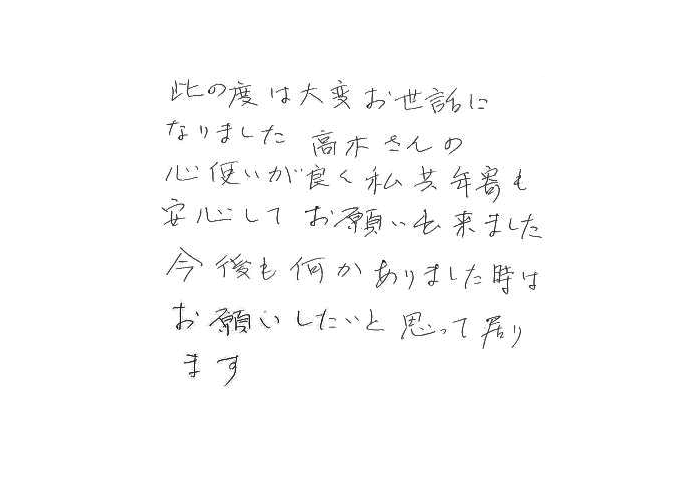 此の度は大変お世話に
なりました 高木さんの
心使いが良く私共年寄も
安心して お願い出来ました
今後も何かありました時は
お願いしたいと思って居り
ます